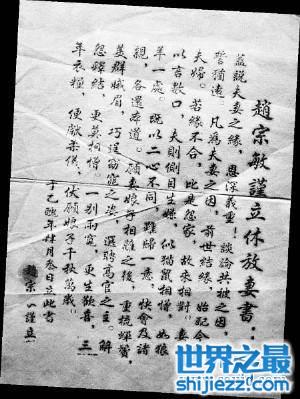 趙宗敏謹立休放妻書：
蓋說夫妻之緣，恩深義重！談論共被之因，
誓猶遠。凡為夫妻之因，前世結緣，始配今
夫婦。若緣不合，比是怨家，故來相對！妻
以言數口，夫則側目生嫌，似貓鼠相憎，如狼
羊一處。既以二心不同，難歸一意，快會及諸
親，各還本道。願妻娘子相離之後，重梳蟬鬢，
美群娥眉，巧逞窈窕之姿，選聘高官之主。解
怨釋結，更莫相憎。一別兩寬，更生歡喜。三
年衣糧，便獻柔儀。伏願娘子千秋萬歲！
年肆月叁日立此書
趙宗一謹立
世界之最